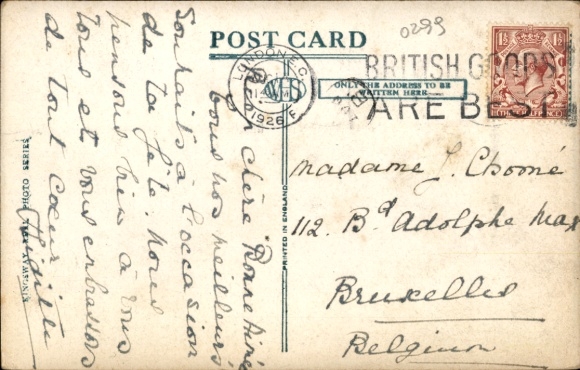 POST CARD
0299
LONDON E.C.
1926
BRITISH GOODS
ARE BEST
ONLY THE ADDRESS TO BE
WRITTEN HERE
WHS
PRINTED IN ENGLAND
KINGSWAY REAL PHOTO SERIES
chère
tous nos meilleurs
Souhaits à l'occasion
de ta fête. nous
pensons bien à vous
tous et vous embrassons
de tout coeur
Madame J. Chomé
112. Bd Adolphe Max
Bruxelles
Belgium